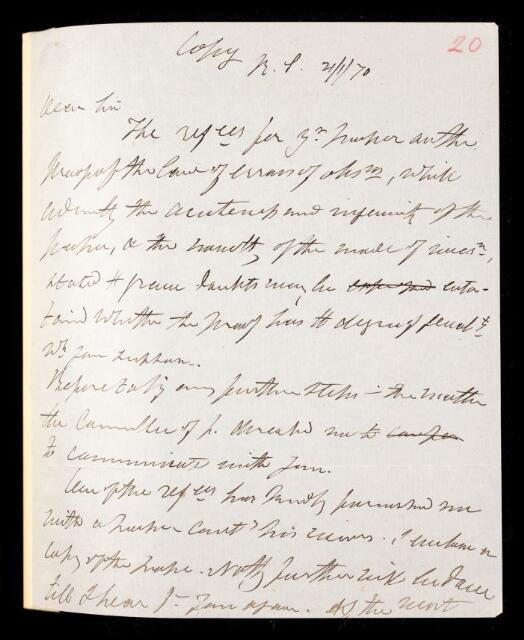 20
Copy R. S. 21/1/70
Dear Sir
The refees for yr paper on the
Proof of the Law of errors of obsns, while
admitg the acuteness and ingenuity of the
paper, & the novelty of the mode of invesn,
stated tt grave doubts may be entertained
whether the proof has tt degree of genty
wh you suppose.
Before takg any further steps in the matter
the Committee of P. directed me to
to communicate with you.
One of the refees has kindly furnished me
with a paper contg his views. I enclose a
copy of the paper. Nothg further will be done
till I hear fm you again. As the next